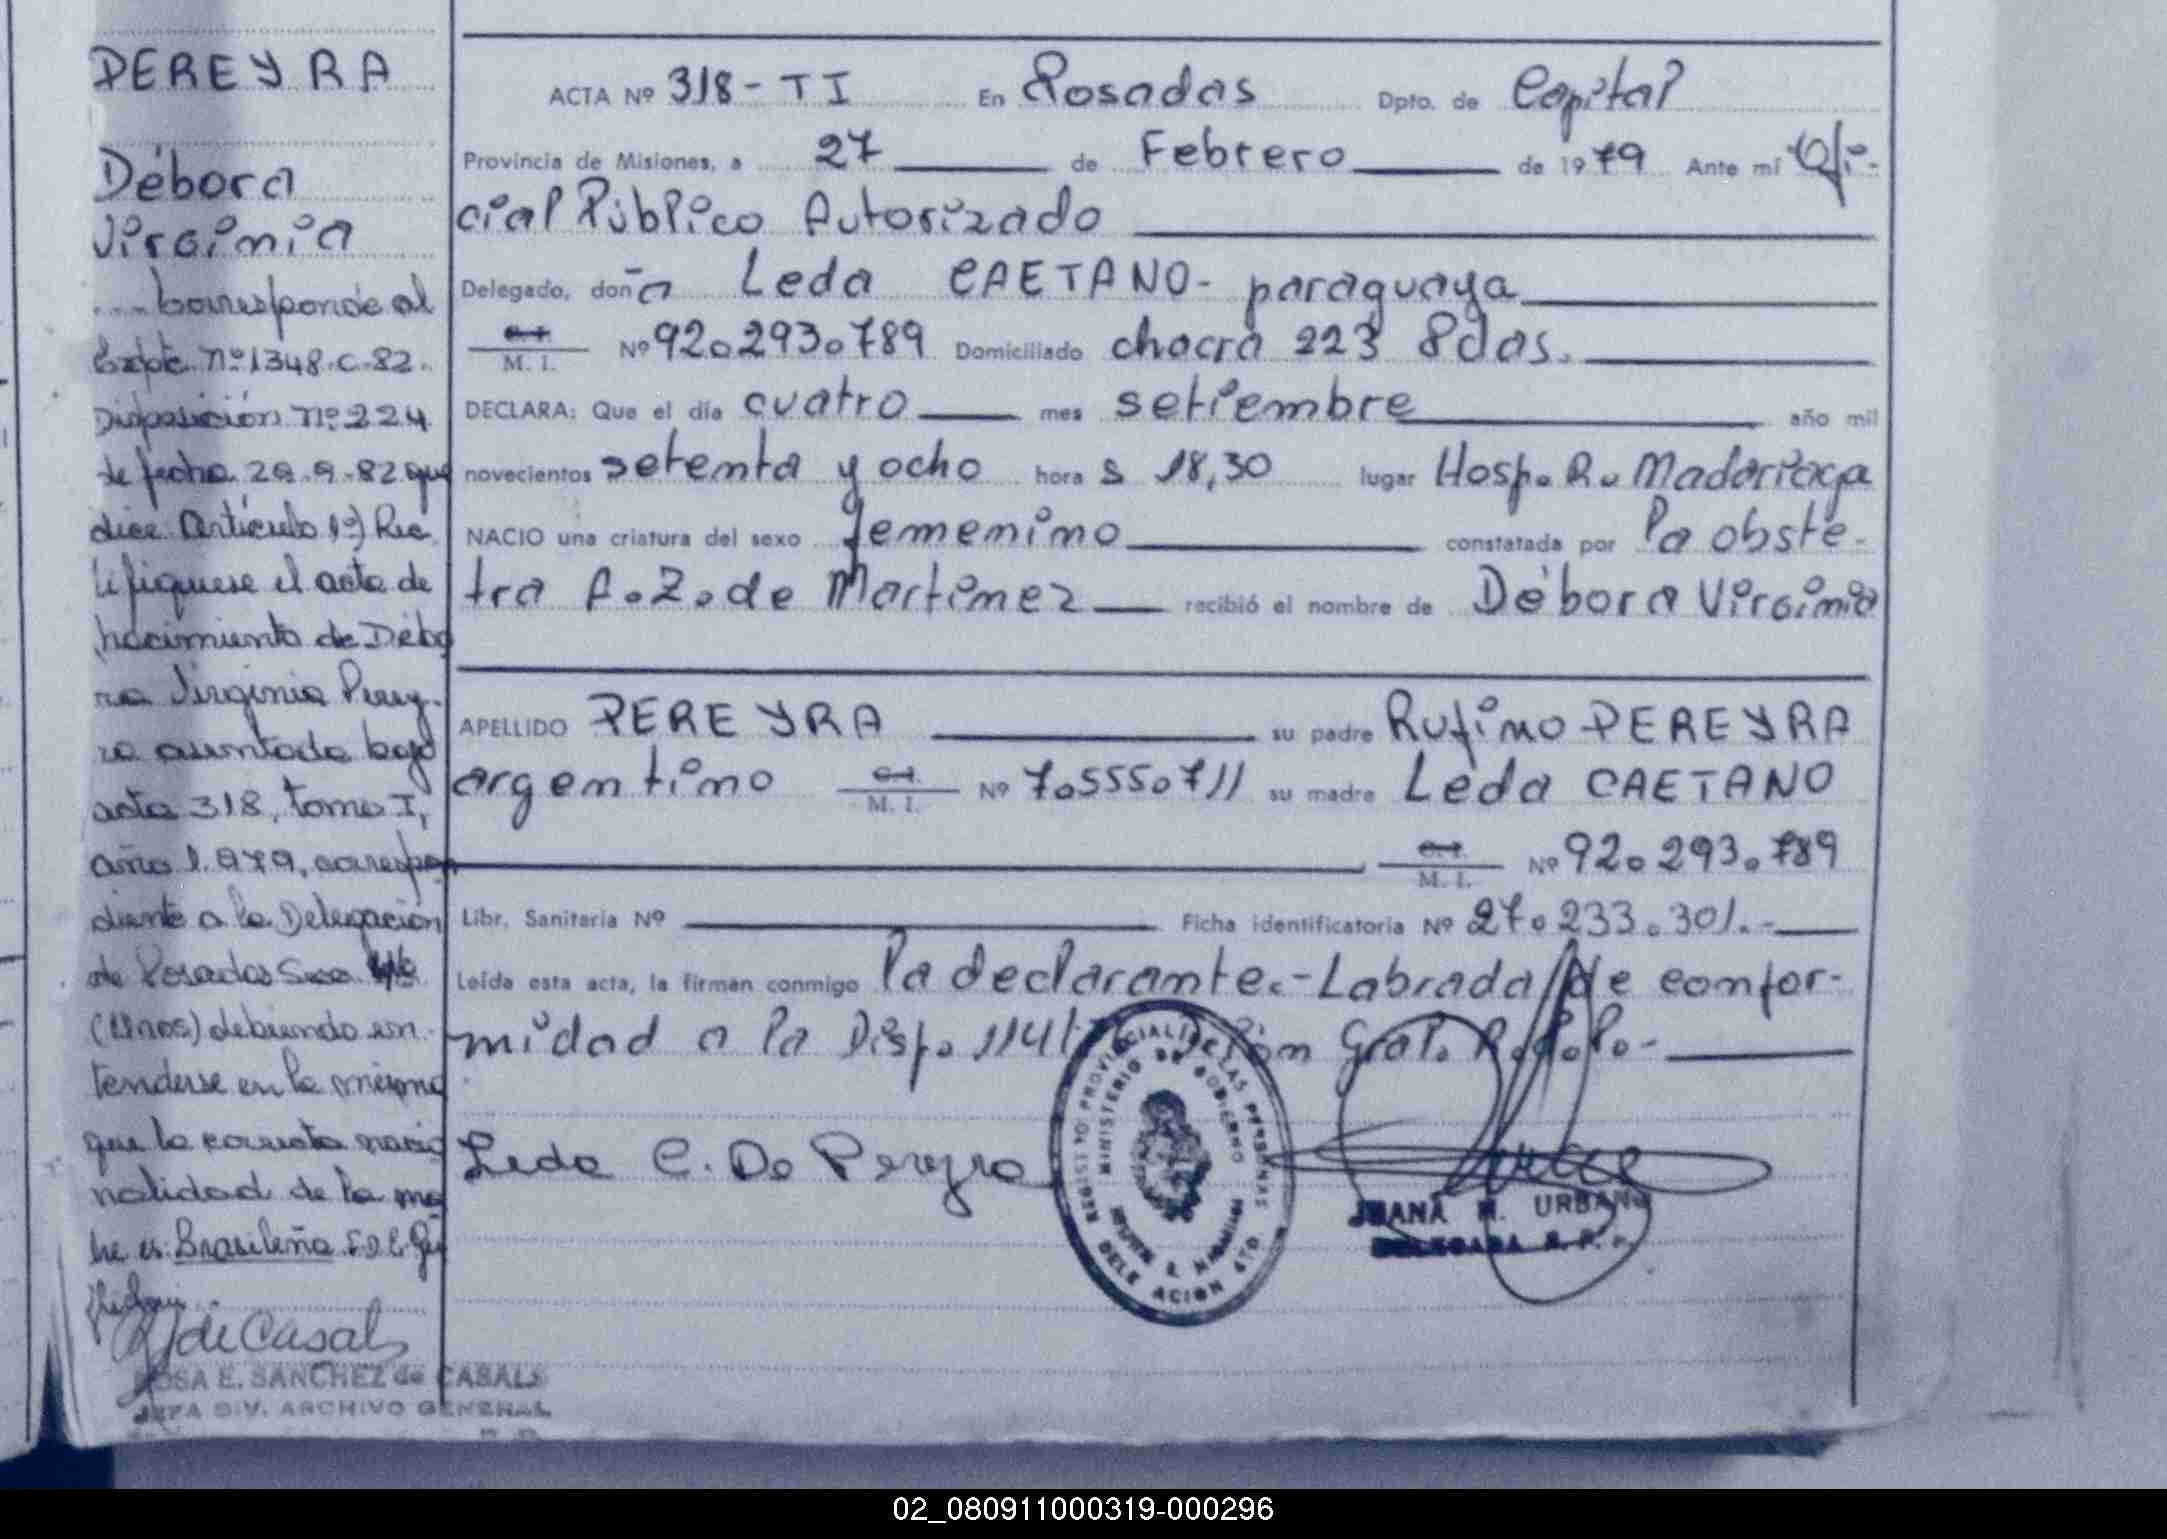 PEREYRA
Débora
Virginia
.... Corresponde al
Expte. Nº 1348.C-82.
Disposición Nº 224
de fecha 28.9.-82 que
dice: Artículo 1º) Rec
tifiquese el acta de
nacimiento de Débo
ra Virginia Perey-
ra asentada bajo
acta 318, tomo I,
año 1.979, correspon
diente a la Delegación
de Posadas Secc.
(Unos) debiendo en-
tenderse en la misma
que la correcta nacio
nalidad de la ma
dre es: Brasileña
de Casals
ROSA E. SANCHEZ de CASALS
JEFA DIV. ARCHIVO GENERAL
ACTA Nº 318-TI En Posadas Dpto. de Capital
Provincia de Misiones, a 27 de Febrero de 1979 Ante mí Ofi-
cial Público Autorizado
Delegado, doña Leda CAETANO- paraguaya
M. I. Nº 92.293.789 Domiciliado chacra 223 Pdas.
DECLARA: Que el día cuatro mes setiembre año mil
novecientos setenta y ocho hora s 18,30 lugar Hosp. R. Madariaga
NACIO una criatura del sexo femenino constatada por la obste-
tra A.Z. de Martinez recibió el nombre de Débora Virginia
APELLIDO PEREYRA su padre Rufino PEREYRA
argentino M. I. Nº 7.555.711 su madre Leda CAETANO
M. I. Nº 92.293.789
Libr. Sanitaria Nº Ficha identificatoria Nº 27.233.301.-
Leída esta acta, la firman conmigo la declarante.-Labrada de confor-
midad a la Disp. Gral. R.d.l.P.-
Leda C. De Pereyra
REGISTRO PROVINCIAL DE LAS PERSONAS
MINISTERIO DE GOBIERNO
DELEGACION
JUANA M. URBANO
DELEGADA R. P. P.
02_080911000319-000296